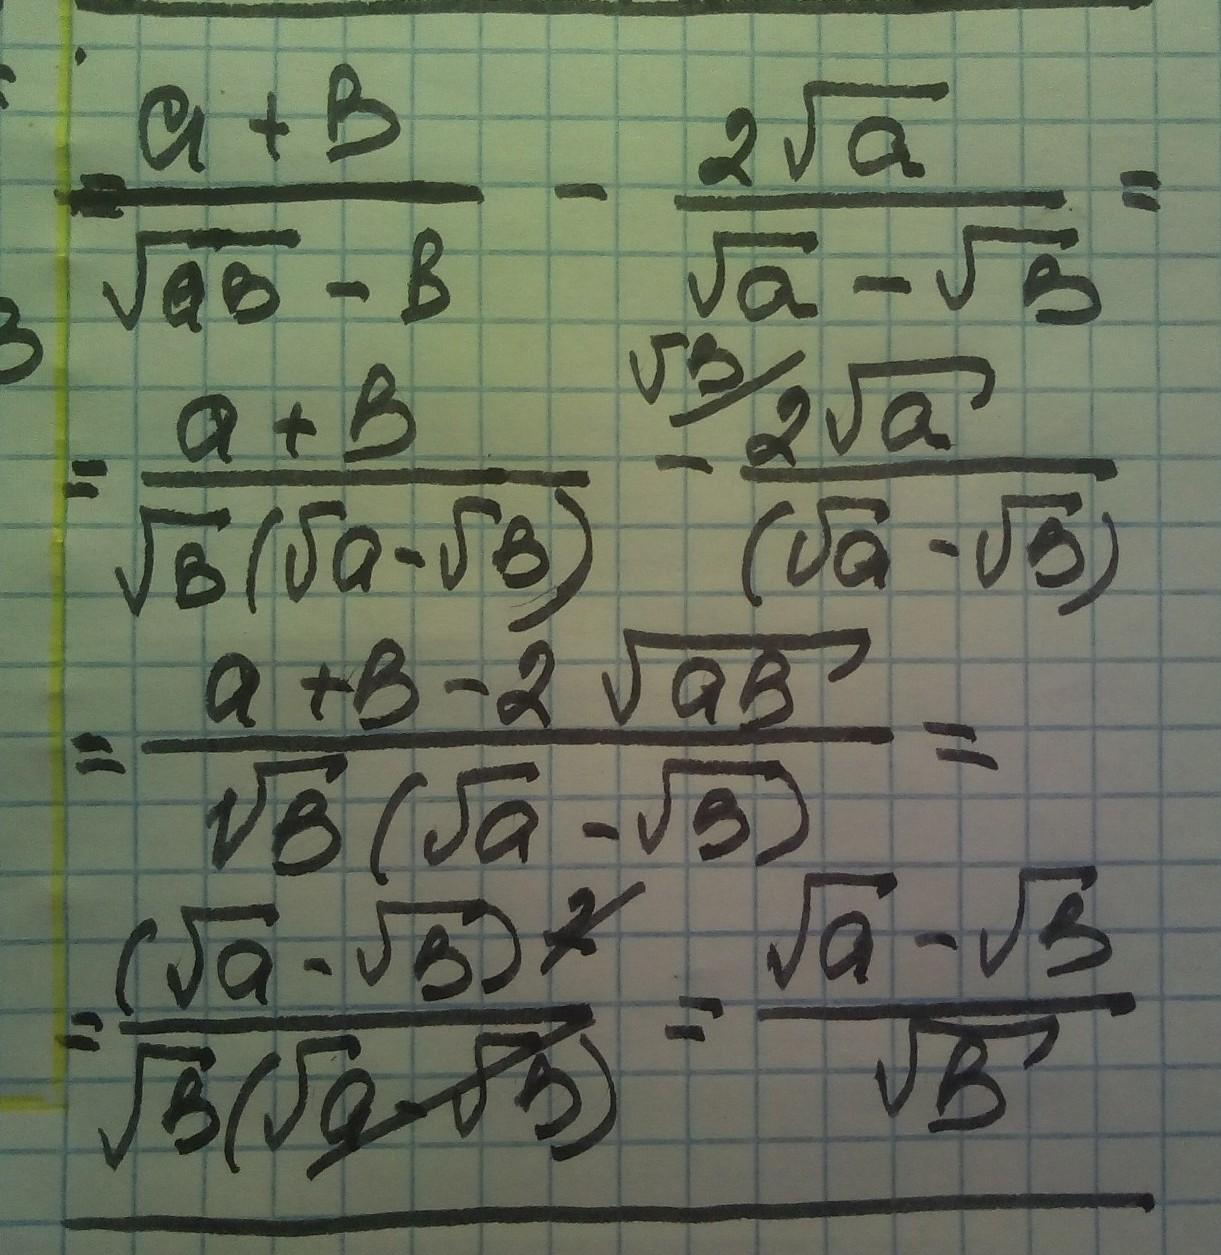 = (a + B)/(√(aB) - B) - (2√a)/(√a - √B) =
= (a + B)/(√B(√a - √B)) - (√B/ 2√a)/((√a - √B))
= (a + B - 2√(aB))/(√B(√a - √B)) =
= (√a - √B)²/(√B(√a - √B)) = (√a - √B)/√B